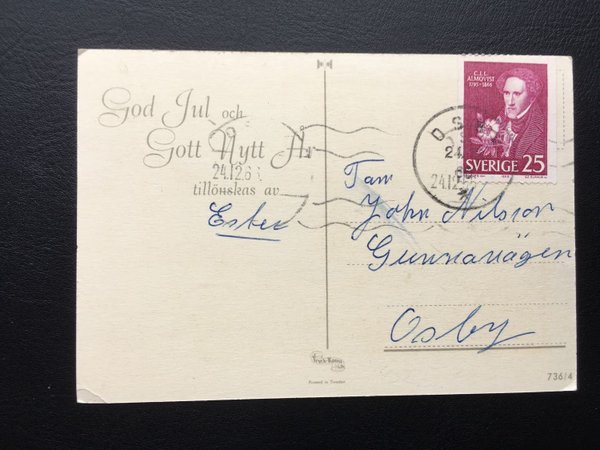 God Jul och
Gott Nytt År
tillönskas av
Ester
24.12.6
C.J.L.
ALMQVIST
1793-1866
SVERIGE 25
24.12
Fam
John Nilsson
Gunnarvägen
Osby
Printed in Sweden
736/4